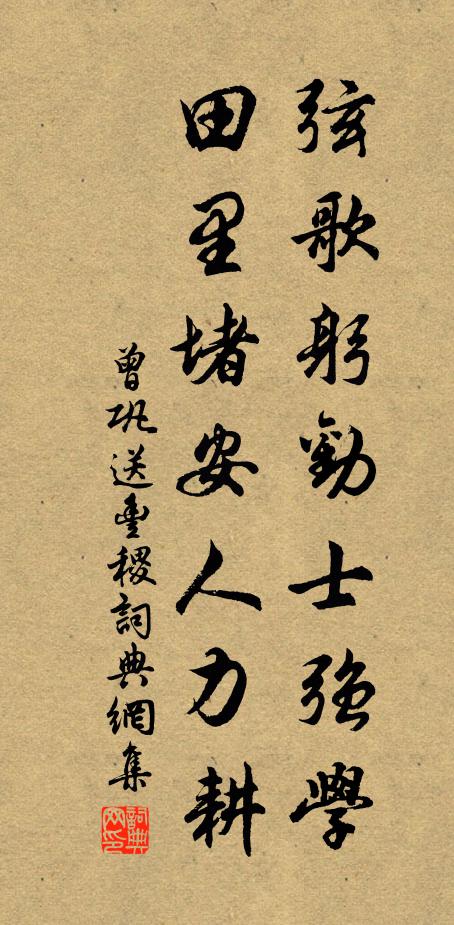 弦歌躬勸士強學
田里堵安人力耕
曾鞏送豐稷詞典網集
詞典網印